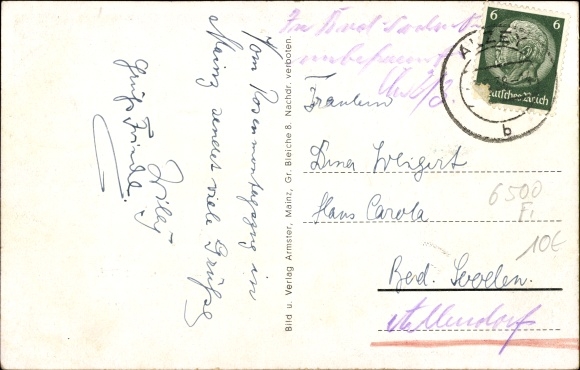 Vom Rosenmontagszug in
Mainz sendet viele Grüße
Willy
Gruß Friedel
Bild u. Verlag Armster, Mainz, Gr. Bleiche 8. Nachdr. verboten.
In Bad Soden
unbekannt
6
6
Deutsches Reich
b
Fräulein
Dina Weigert
Haus Carola
Bad. Sooden.
Allendorf
6500
F1
10€